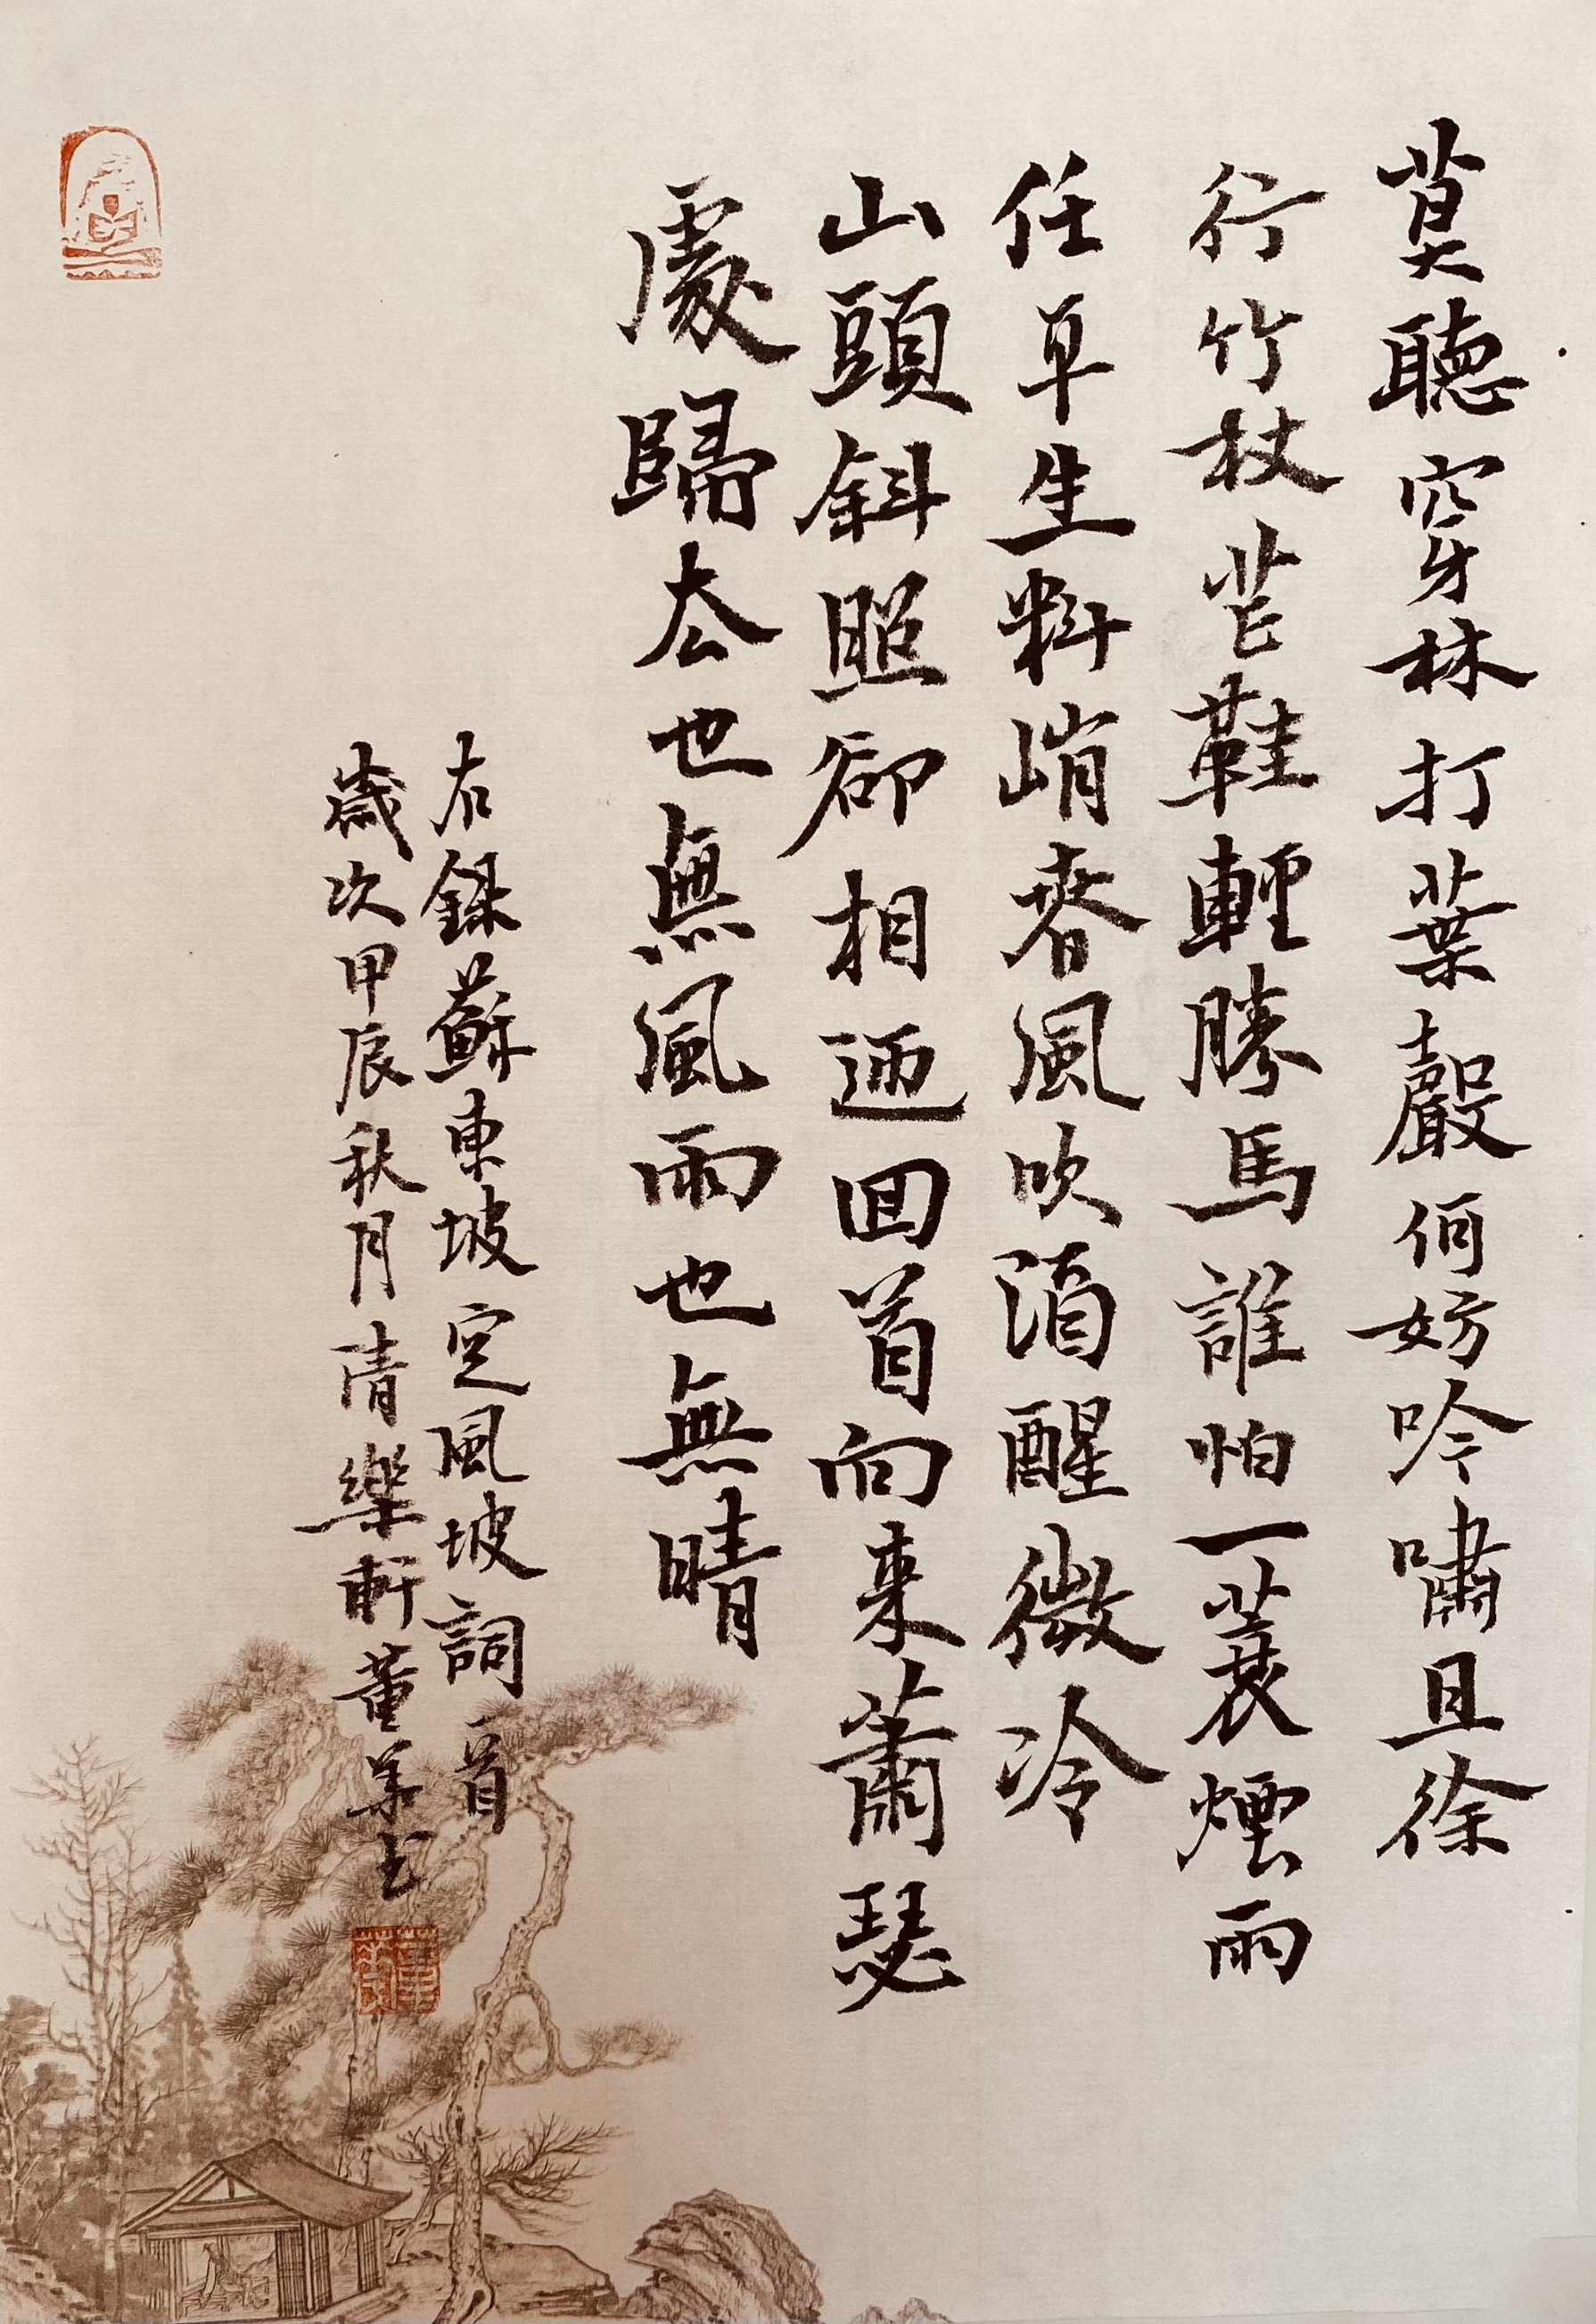 莫聽穿林打葉聲何妨吟嘯且徐
行竹杖芒鞋輕勝馬誰怕一蓑煙雨
任平生料峭春風吹酒醒微冷
山頭斜照卻相迎回首向来蕭瑟
處歸去也無風雨也無晴
右錄蘇東坡定風坡詞一首
歲次甲辰秋月清樂軒董书